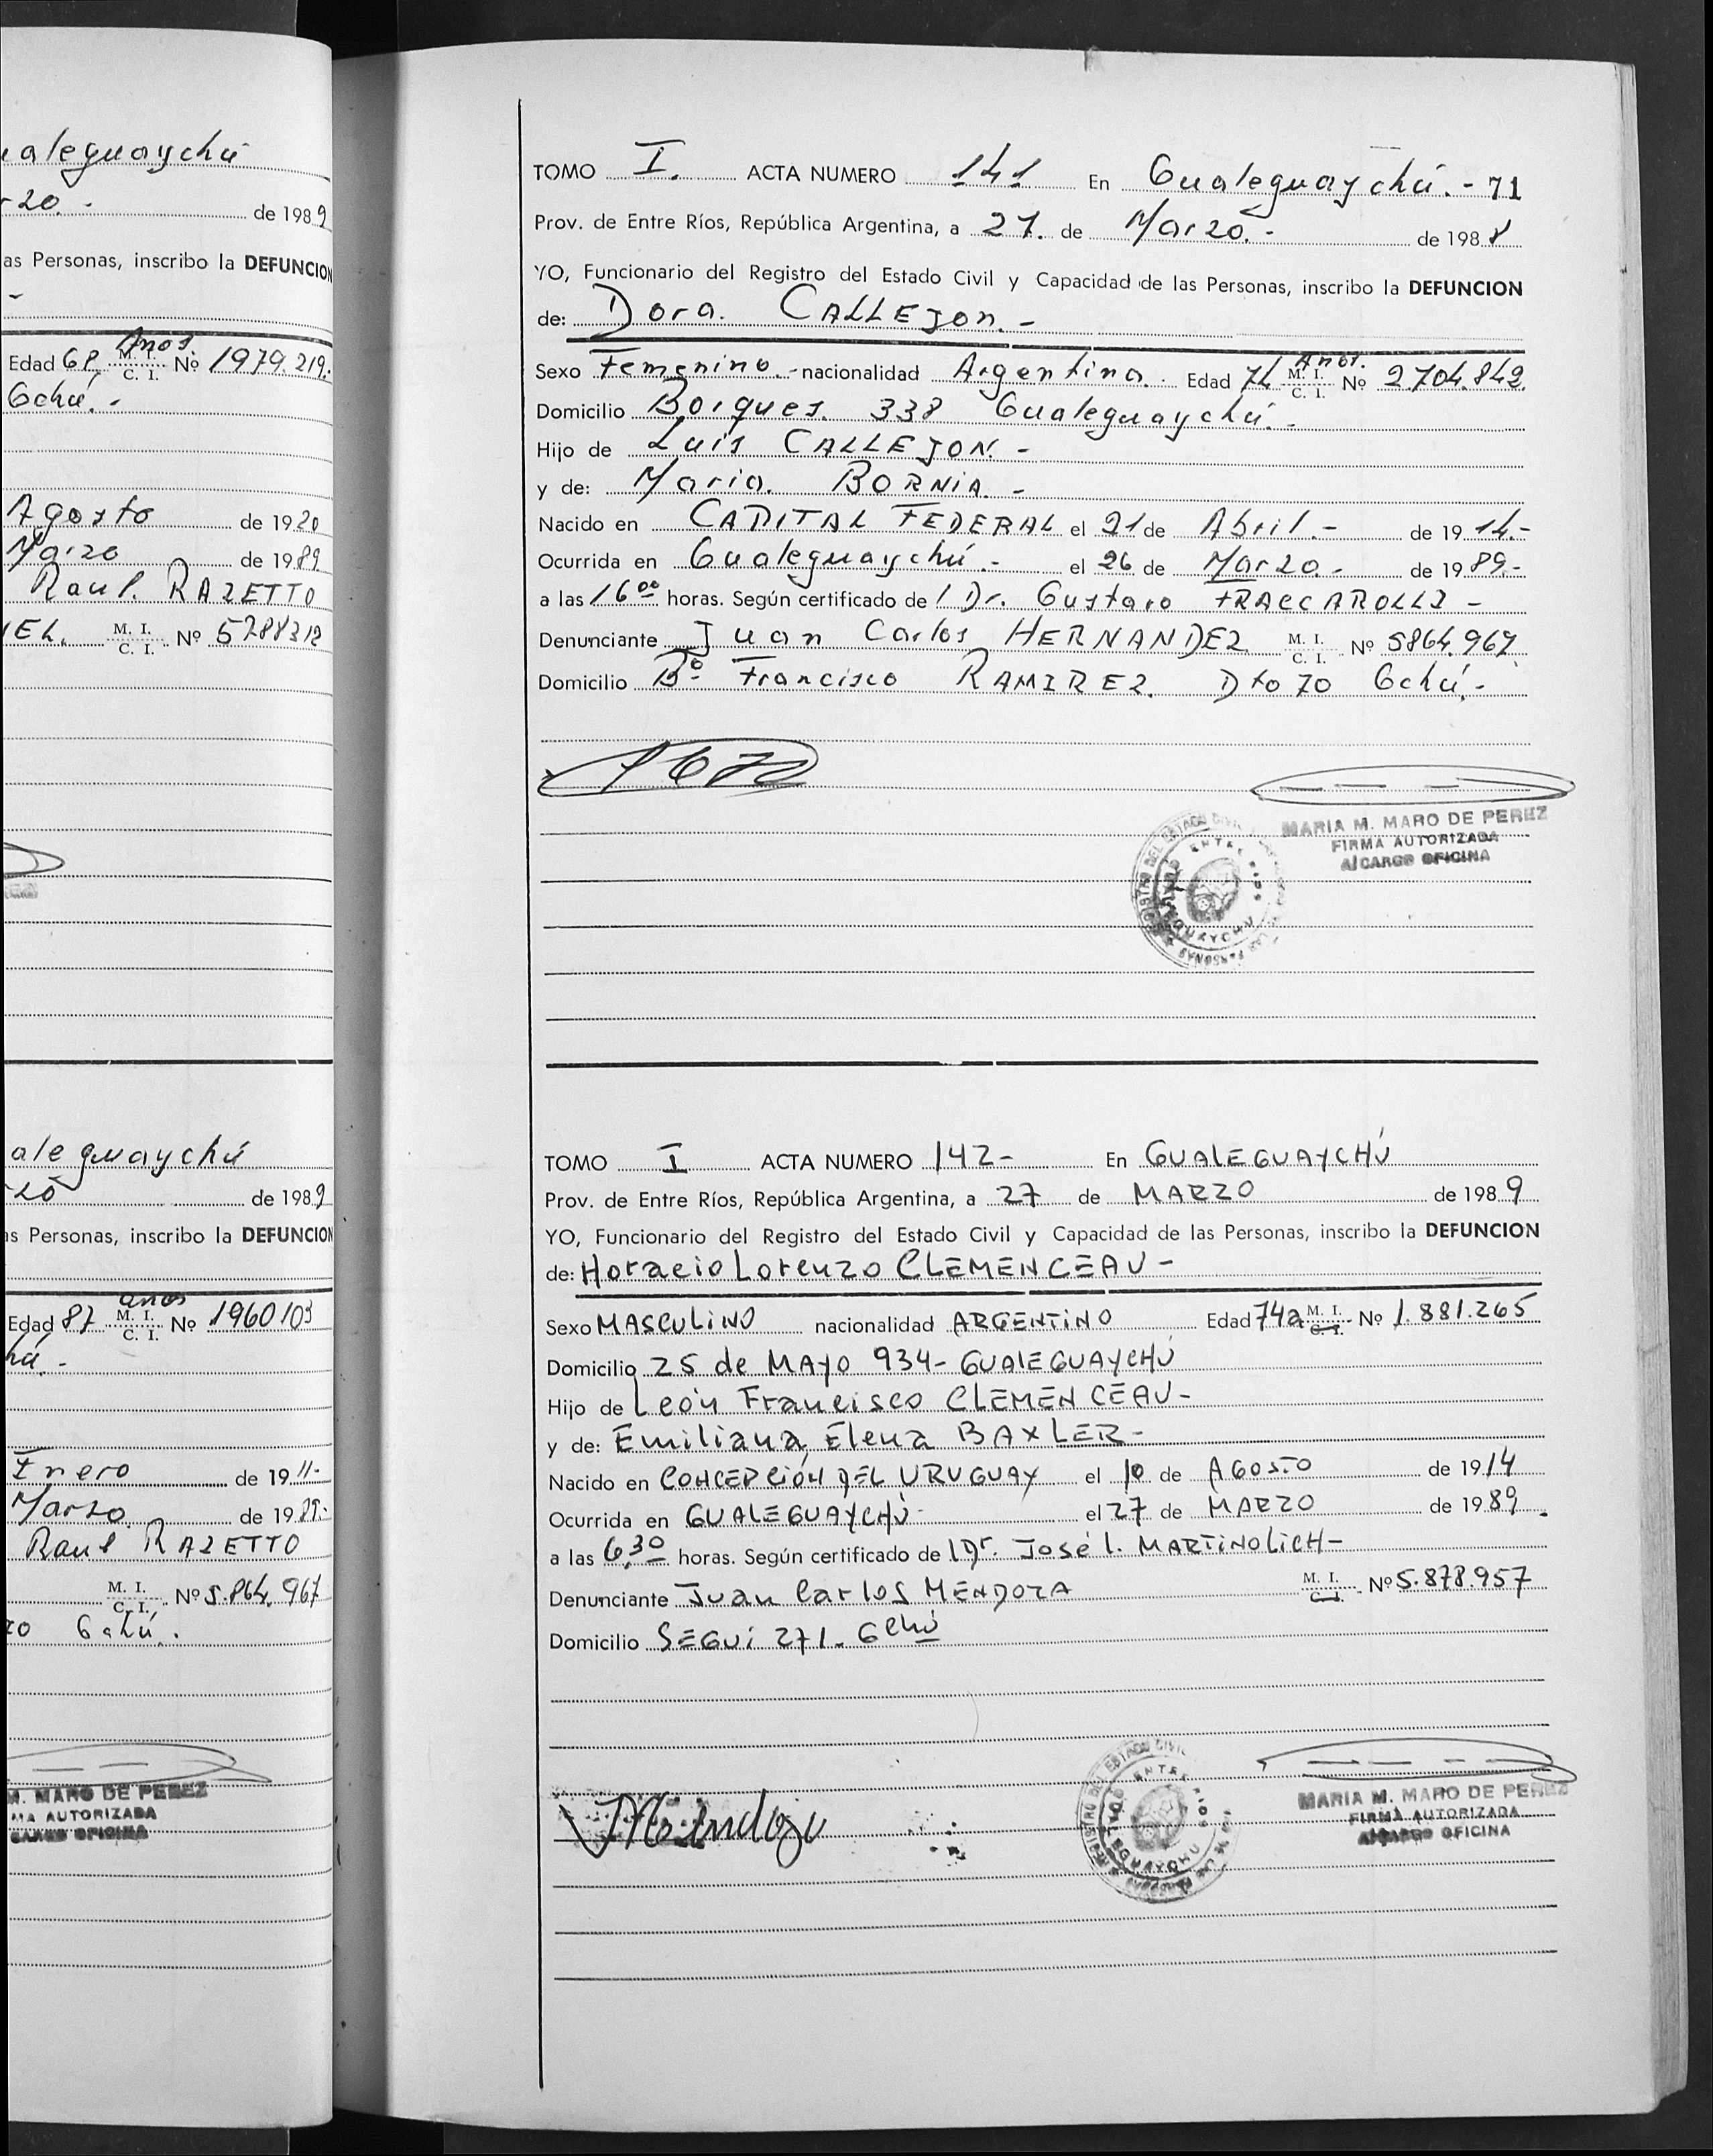 aleguaychú
20.-
de 1989
as Personas, inscribo la DEFUNCION
-
Años.
Edad 68 M. I. C. I. Nº 1979.219.-
Gchú.-
Agosto de 1920
Marzo de 1989
Raul. RAZETTO
EL. M. I. C. I. Nº 5788312
aleguaychú
zo de 1989
as Personas, inscribo la DEFUNCION
años
Edad 87 M. I. C. I. Nº 1960103
hú.-
Enero de 1911-
Marzo de 1989.-
Raul RAZETTO
M. I. C. I. Nº 5.864.967
70 Gchú.
M. MARO DE PEREZ
MA AUTORIZADA
CARGO OFICINA
TOMO I. ACTA NUMERO 141 En Gualeguaychú.- 71
Prov. de Entre Ríos, República Argentina, a 27. de Marzo.- de 198
YO, Funcionario del Registro del Estado Civil y Capacidad de las Personas, inscribo la DEFUNCION
de: Dora. CALLEJON.-
Años.
Sexo Femenino.- nacionalidad Argentina. Edad 74 M. I. C. I. Nº 2704.842.
Domicilio Borques. 338 Gualeguaychú.-
Hijo de Luis CALLEJON.-
y de: Maria. BORNIA.-
Nacido en CAPITAL FEDERAL el 21 de Abril.- de 1914.-
Ocurrida en Gualeguaychú.- el 26 de Marzo.- de 1989.-
a las 16 00 horas. Según certificado de l Dr. Gustavo FRACCAROLLI -
Denunciante Juan Carlos HERNANDEZ M. I. C. I. Nº 5864.967
Domicilio Bº Francisco RAMIREZ. Dto 70 Gchú.-
MARIA M. MARO DE PEREZ
FIRMA AUTORIZADA
A/CARGO OFICINA
REGISTRO DEL ESTADO CIVIL
ENTRE RIOS
GUALEGUAYCHU
TOMO I ACTA NUMERO 142- En GUALEGUAYCHÚ
Prov. de Entre Ríos, República Argentina, a 27 de MARZO de 1989
YO, Funcionario del Registro del Estado Civil y Capacidad de las Personas, inscribo la DEFUNCION
de: Horacio Lorenzo CLEMENCEAU -
Sexo MASCULINO nacionalidad ARGENTINO Edad 74a M. I. C. I. Nº 1.881.265
Domicilio 25 de MAYO 934- GUALEGUAYCHÚ
Hijo de León Francisco CLEMENCEAU-
y de: Emiliana Elena BAXLER-
Nacido en CONCEPCIÓN DEL URUGUAY el 10 de AGOSTO de 1914
Ocurrida en GUALEGUAYCHÚ- el 27 de MARZO de 1989.
a las 6,30 horas. Según certificado de l Dr. José l. MARTINOLICH-
Denunciante Juan Carlos MENDOZA M. I. C. I. Nº 5.878.957
Domicilio SEGUI 271. Gchú
REGISTRO DEL ESTADO CIVIL
ENTRE RIOS
GUALEGUAYCHU
MARIA M. MARO DE PEREZ
FIRMA AUTORIZADA
A/CARGO OFICINA